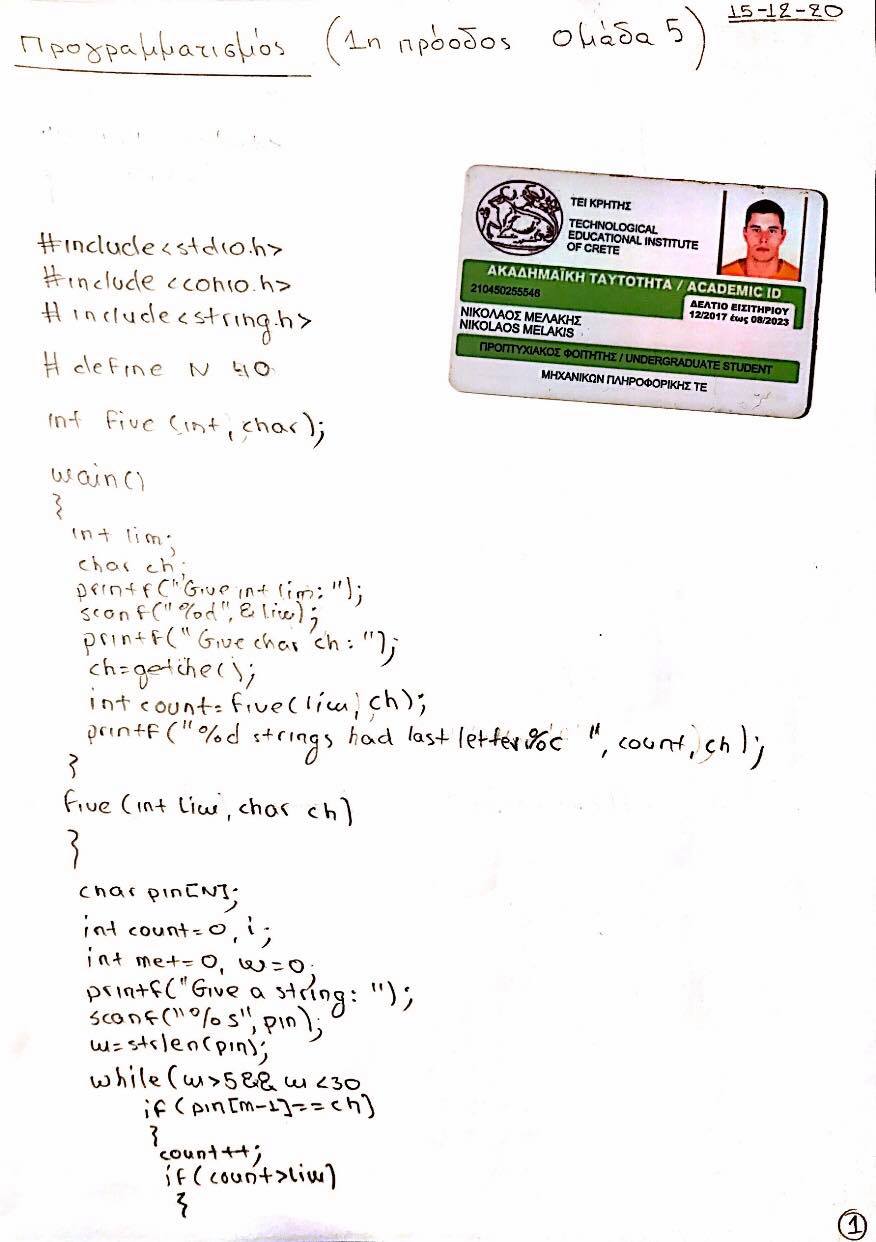 15-12-20
Προγραμματισμός (1η πρόοδος Ομάδα 5)
ΤΕΙ ΚΡΗΤΗΣ
TECHNOLOGICAL
EDUCATIONAL INSTITUTE
OF CRETE
ΑΚΑΔΗΜΑΪΚΗ ΤΑΥΤΟΤΗΤΑ / ACADEMIC ID
210450255546
ΔΕΛΤΙΟ ΕΙΣΙΤΗΡΙΟΥ
12/2017 έως 08/2023
ΝΙΚΟΛΑΟΣ ΜΕΛΑΚΗΣ
NIKOLAOS MELAKIS
ΠΡΟΠΤΥΧΙΑΚΟΣ ΦΟΙΤΗΤΗΣ / UNDERGRADUATE STUDENT
ΜΗΧΑΝΙΚΩΝ ΠΛΗΡΟΦΟΡΙΚΗΣ ΤΕ
#include<stdio.h>
#include <conio.h>
#include<string.h>
#define N 40
int five (int, char);
main()
{
int lim;
char ch;
printf("Give int lim: ");
scanf("%d", & lim);
printf("Give char ch: ");
ch=getche();
int count= five(lim, ch);
printf("%d strings had last letter %c ", count, ch);
}
five (int lim, char ch)
{
char pin[N];
int count=0, i;
int met=0, m=0;
printf("Give a string: ");
scanf("%s", pin);
m=strlen(pin);
while(m>5 && m<30
if(pin[m-1]==ch)
{
count++;
if(count>lim)
{
1